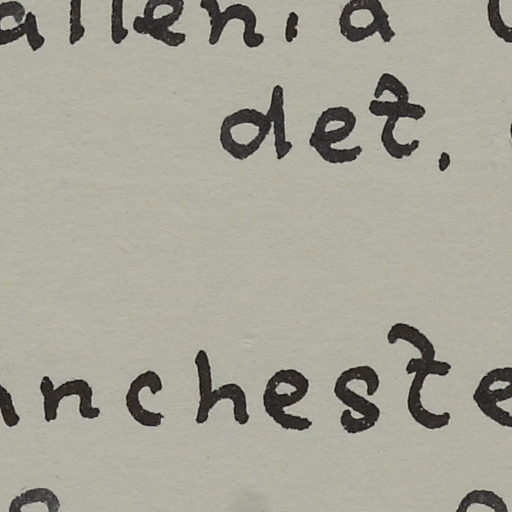 allen, a
det.
ancheste